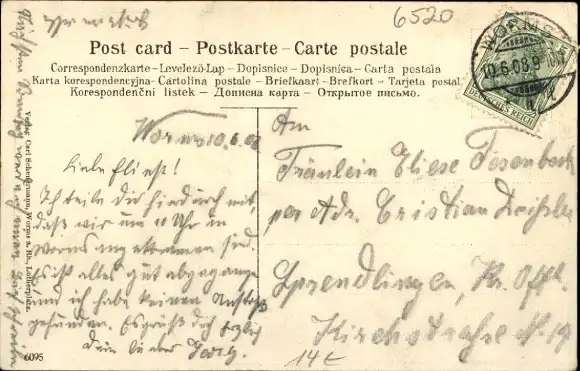 6520
WORMS
10.6.08.9-10V.
DEUTSCHES REICH
Post card – Postkarte – Carte postale
Correspondenzkarte – Levelező-Lap – Dopisnice – Dopisnica – Carta postala
Karta korespondencyjna – Cartolina postale – Briefkaart – Brefkort – Tarjeta postal
Korespondenční listek – Дописна карта – Открытое письмо.
Worms 10.6.08
Liebe
Ich teile dir hierdurch mit,
daß wir um 10 Uhr in
Worms angekommen sind.
ist alles gut abgegangen
und ich habe keinen Anstoß
gefunden. Es grüßt dich herzlich
Dein
Georg.
An
Fräulein Eliese
per Adr. Cristian
Sprendlingen, Kr. Offb.
Kirchstraße N. 19
14€
6095
Verlag: Carl Worms a. Rh.,